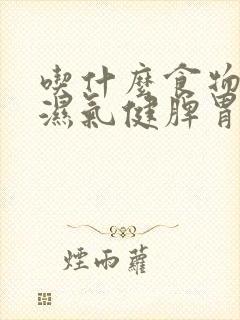 喫什麼食物
濕氣健脾胃
煙雨蘿